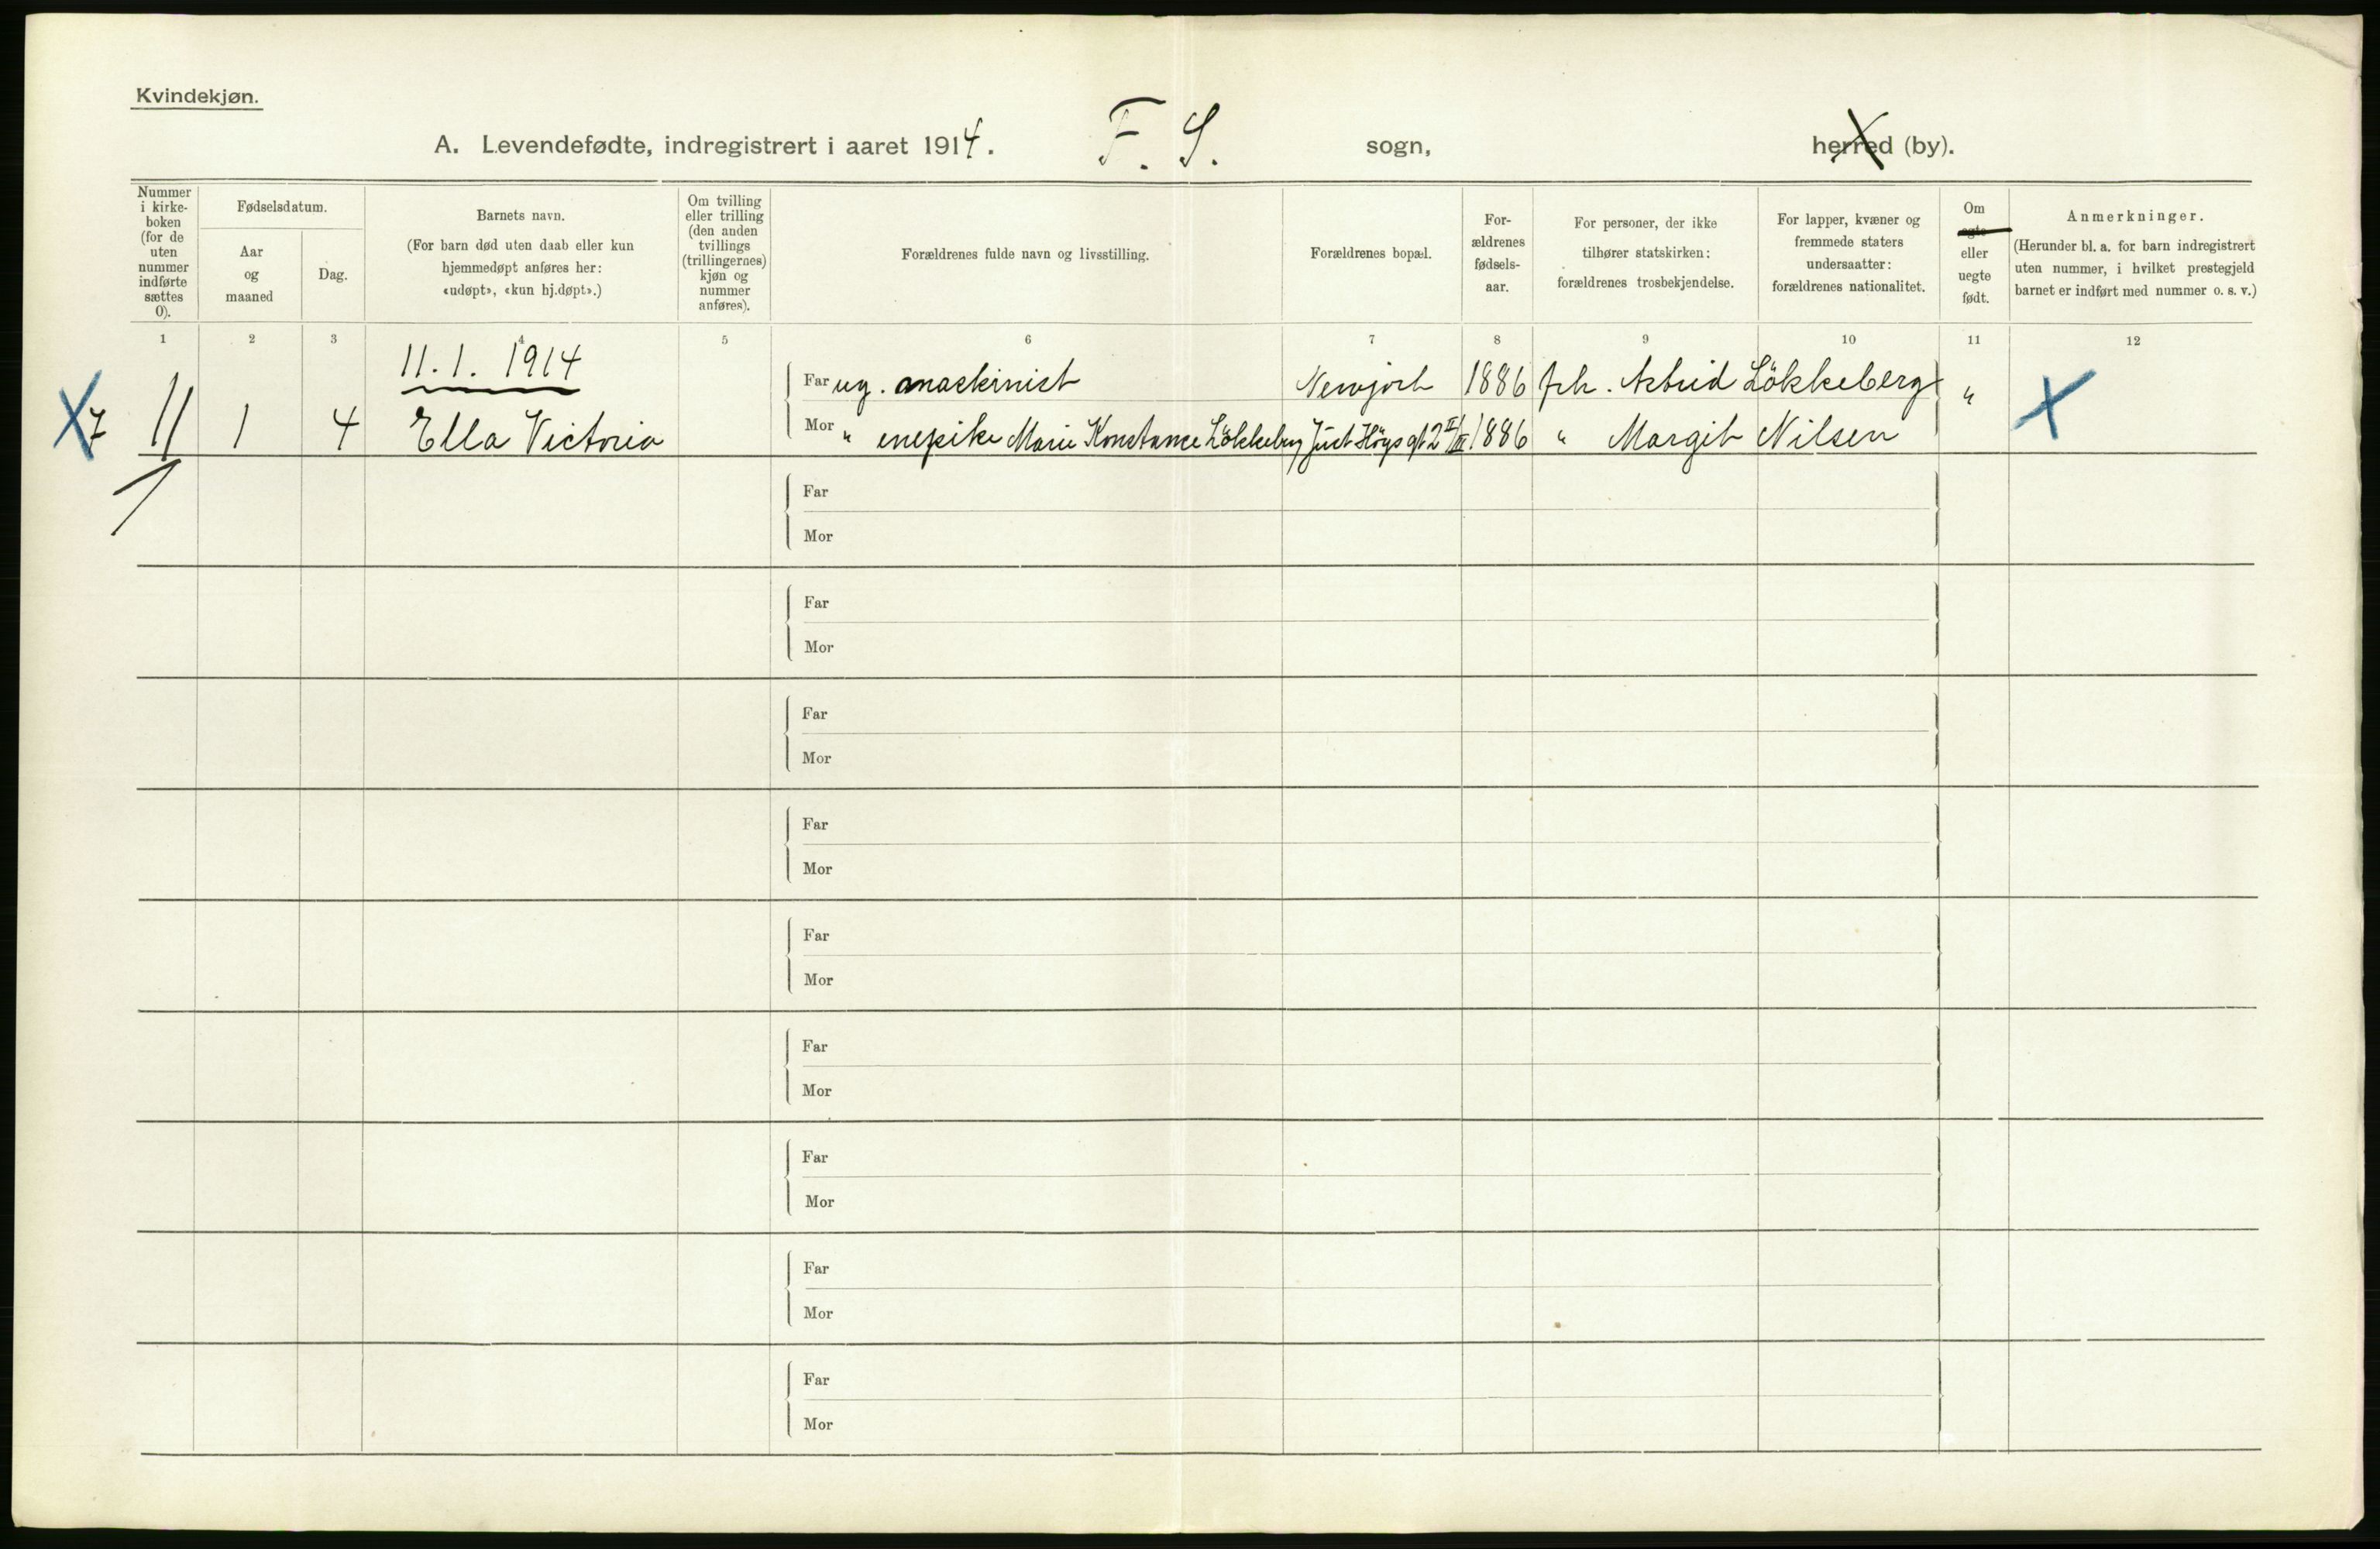 Kvindekjøn.
A. Levendefødte, indregistrert i aaret 1914. F. S. sogn, herred (by).
Nummer i kirke-boken (for de uten nummer indførte sættes 0).
Fødselsdatum.
Aar og maaned
Dag.
Barnets navn.
(For barn død uten daab eller kun hjemmedøpt anføres her: «udøpt», «kun hj.døpt».)
Om tvilling eller trilling (den anden tvillings (trillingernes) kjøn og nummer anføres).
Forældrenes fulde navn og livsstilling.
Forældrenes bopæl.
For-ældrenes fødsels-aar.
For personer, der ikke tilhører statskirken: forældrenes trosbekjendelse.
For lapper, kvæner og fremmede staters undersaatter: forældrenes nationalitet.
Om egte eller uegte født.
Anmerkninger.
(Herunder bl. a. for barn indregistrert uten nummer, i hvilket prestegjeld barnet er indført med nummer o. s. v.)
1 2 3 4 5 6 7 8 9 10 11 12
11. 1. 1914
Far ug. maskinist Newjork 1886 frk. Astrid Lökkeberg "
X 7 11 1 4 Ella Victoria Mor " enepike Marie Konstance Lökkeberg Just Högs gt 2 II/III 1886 " Margit Nilsen X
Far
Mor
Far
Mor
Far
Mor
Far
Mor
Far
Mor
Far
Mor
Far
Mor
Far
Mor
Far
Mor